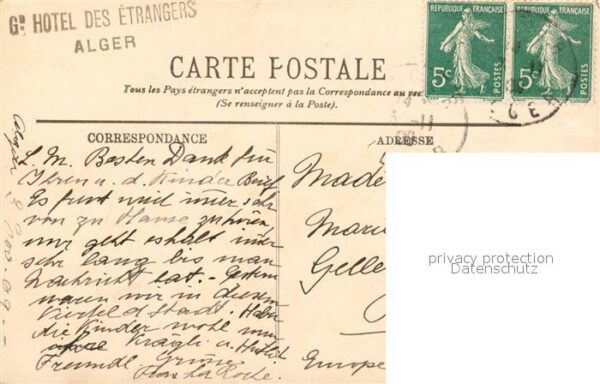 Gd HOTEL DES ÉTRANGERS
ALGER
RÉPUBLIQUE FRANÇAISE
5c
POSTES
RÉPUBLIQUE FRANÇAISE
5c
POSTES
CARTE POSTALE
Tous les Pays étrangers n'acceptent pas la Correspondance au
(Se renseigner à la Poste).
CORRESPONDANCE
ADRESSE
L. M. Besten Dank für
Ihren u. d. Kinder Brief
Es freut mich immer sehr
von zu Hause zu hören
mir geht es halt immer
sehr lang bis man
Nachricht hat. - Gestern
waren wir in diesem
Viertel d Stadt.
die Kinder wohl
u.
Freundl Grüsse
Made
Marie
Gelle
Europe
privacy protection
Datenschutz